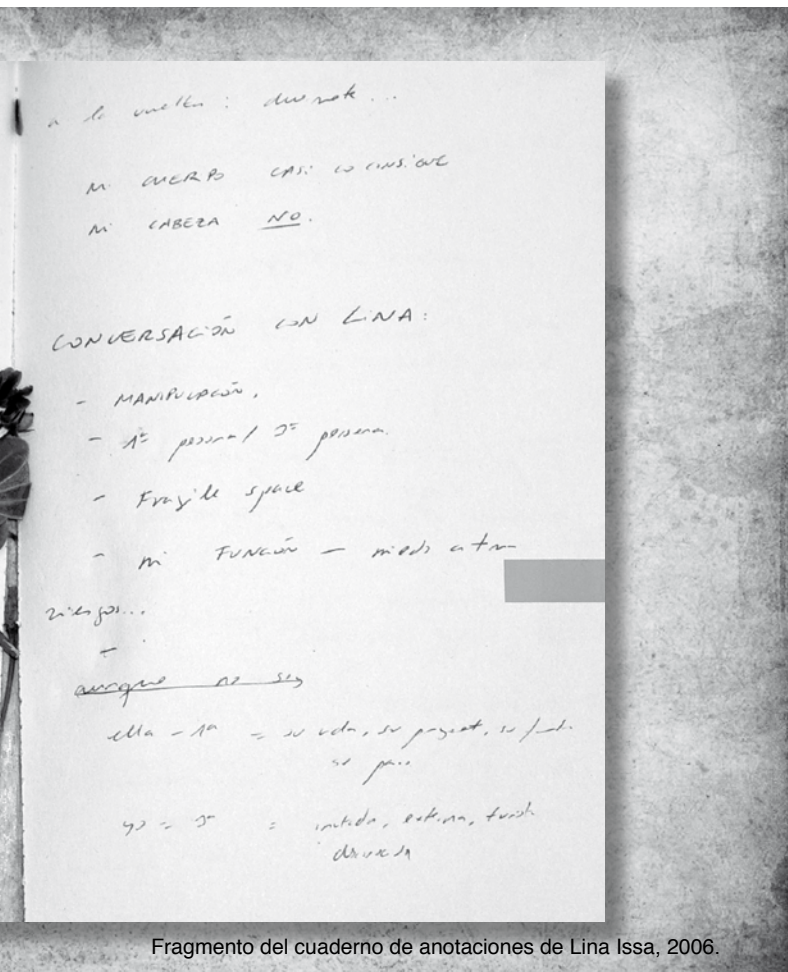 a la vuelta :
MI CUERPO CASI LO CONSIGUE
MI CABEZA NO.
CONVERSACIÓN CON LINA:
- MANIPULACIÓN.
- 1ª persona / 3ª persona.
- Fragile space
- mi FUNCIÓN — miedo
riesgos...
-
aunque no soy
ella - 1ª = su vida, su proyect, su
su país
yo = 3ª = invitada, externa, turista
Fragmento del cuaderno de anotaciones de Lina Issa, 2006.